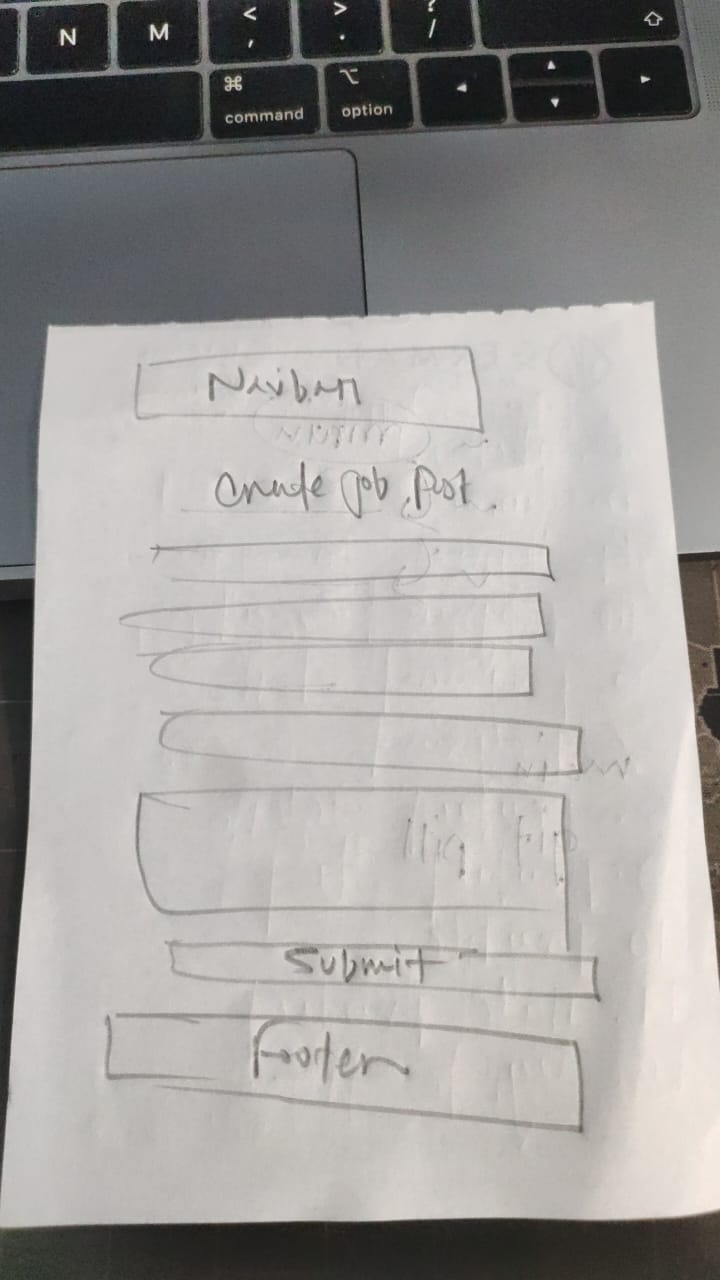 N
M
<
,
>
.
?
/
⌘
command
⌥
option
Navbar
Create Job Post
Submit
Footer